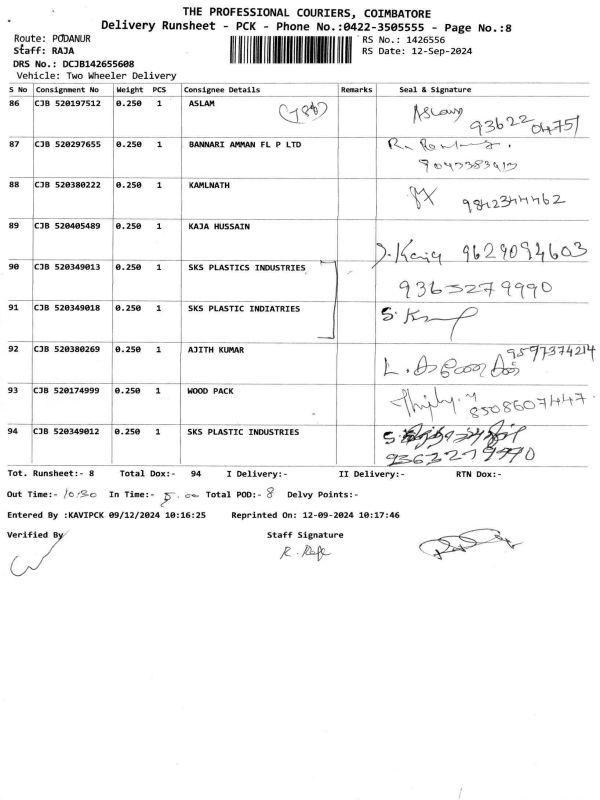 THE PROFESSIONAL COURIERS, COIMBATORE
Delivery Runsheet - PCK - Phone No.:0422-3505555 - Page No.:8
Route: PODANUR RS No.: 1426556
Staff: RAJA RS Date: 12-Sep-2024
DRS No.: DCJB142655608
Vehicle: Two Wheeler Delivery
S No Consignment No Weight PCS Consignee Details Remarks Seal & Signature
86 CJB 520197512 0.250 1 ASLAM Aslam
93622 04751
87 CJB 520297655 0.250 1 BANNARI AMMAN FL P LTD
88 CJB 520380222 0.250 1 KAMLNATH 9842344462
89 CJB 520405489 0.250 1 KAJA HUSSAIN J. Kaja 9629094603
90 CJB 520349013 0.250 1 SKS PLASTICS INDUSTRIES 9363279990
91 CJB 520349018 0.250 1 SKS PLASTIC INDIATRIES
92 CJB 520380269 0.250 1 AJITH KUMAR 9597374214
93 CJB 520174999 0.250 1 WOOD PACK 8508607447
94 CJB 520349012 0.250 1 SKS PLASTIC INDUSTRIES
9363279990
Tot. Runsheet:- 8 Total Dox:- 94 I Delivery:- II Delivery:- RTN Dox:-
Out Time:- 10:30 In Time:- 5.00 Total POD:- 8 Delvy Points:-
Entered By :KAVIPCK 09/12/2024 10:16:25 Reprinted On: 12-09-2024 10:17:46
Verified By Staff Signature